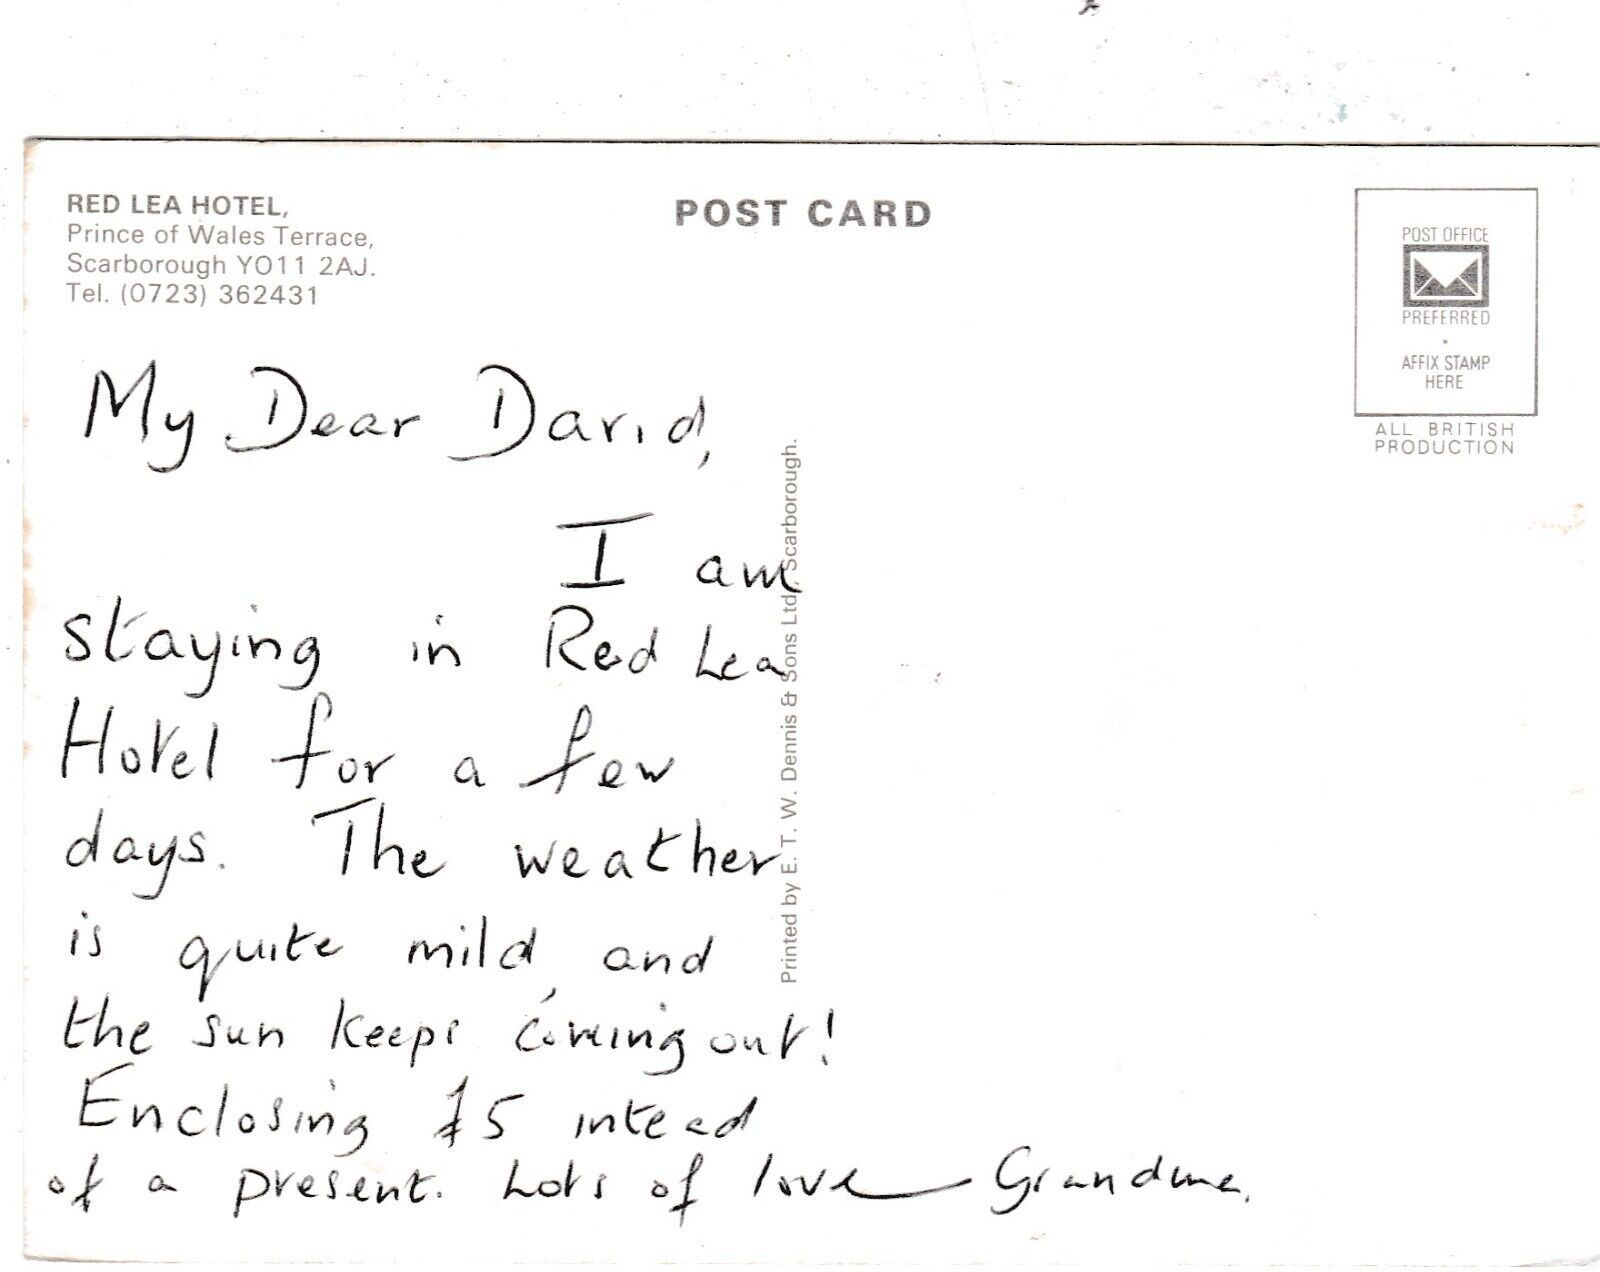 RED LEA HOTEL,
Prince of Wales Terrace,
Scarborough YO11 2AJ.
Tel. (0723) 362431
POST CARD
POST OFFICE
PREFERRED
AFFIX STAMP
HERE
ALL BRITISH
PRODUCTION
My Dear David,
I am
staying in Red Lea
Hotel for a few
days. The weather
is quite mild, and
the sun keeps coming out!
Enclosing £5 intead
of a present. Lots of love Grandma.
Printed by E. T. W. Dennis & Sons Ltd., Scarborough.